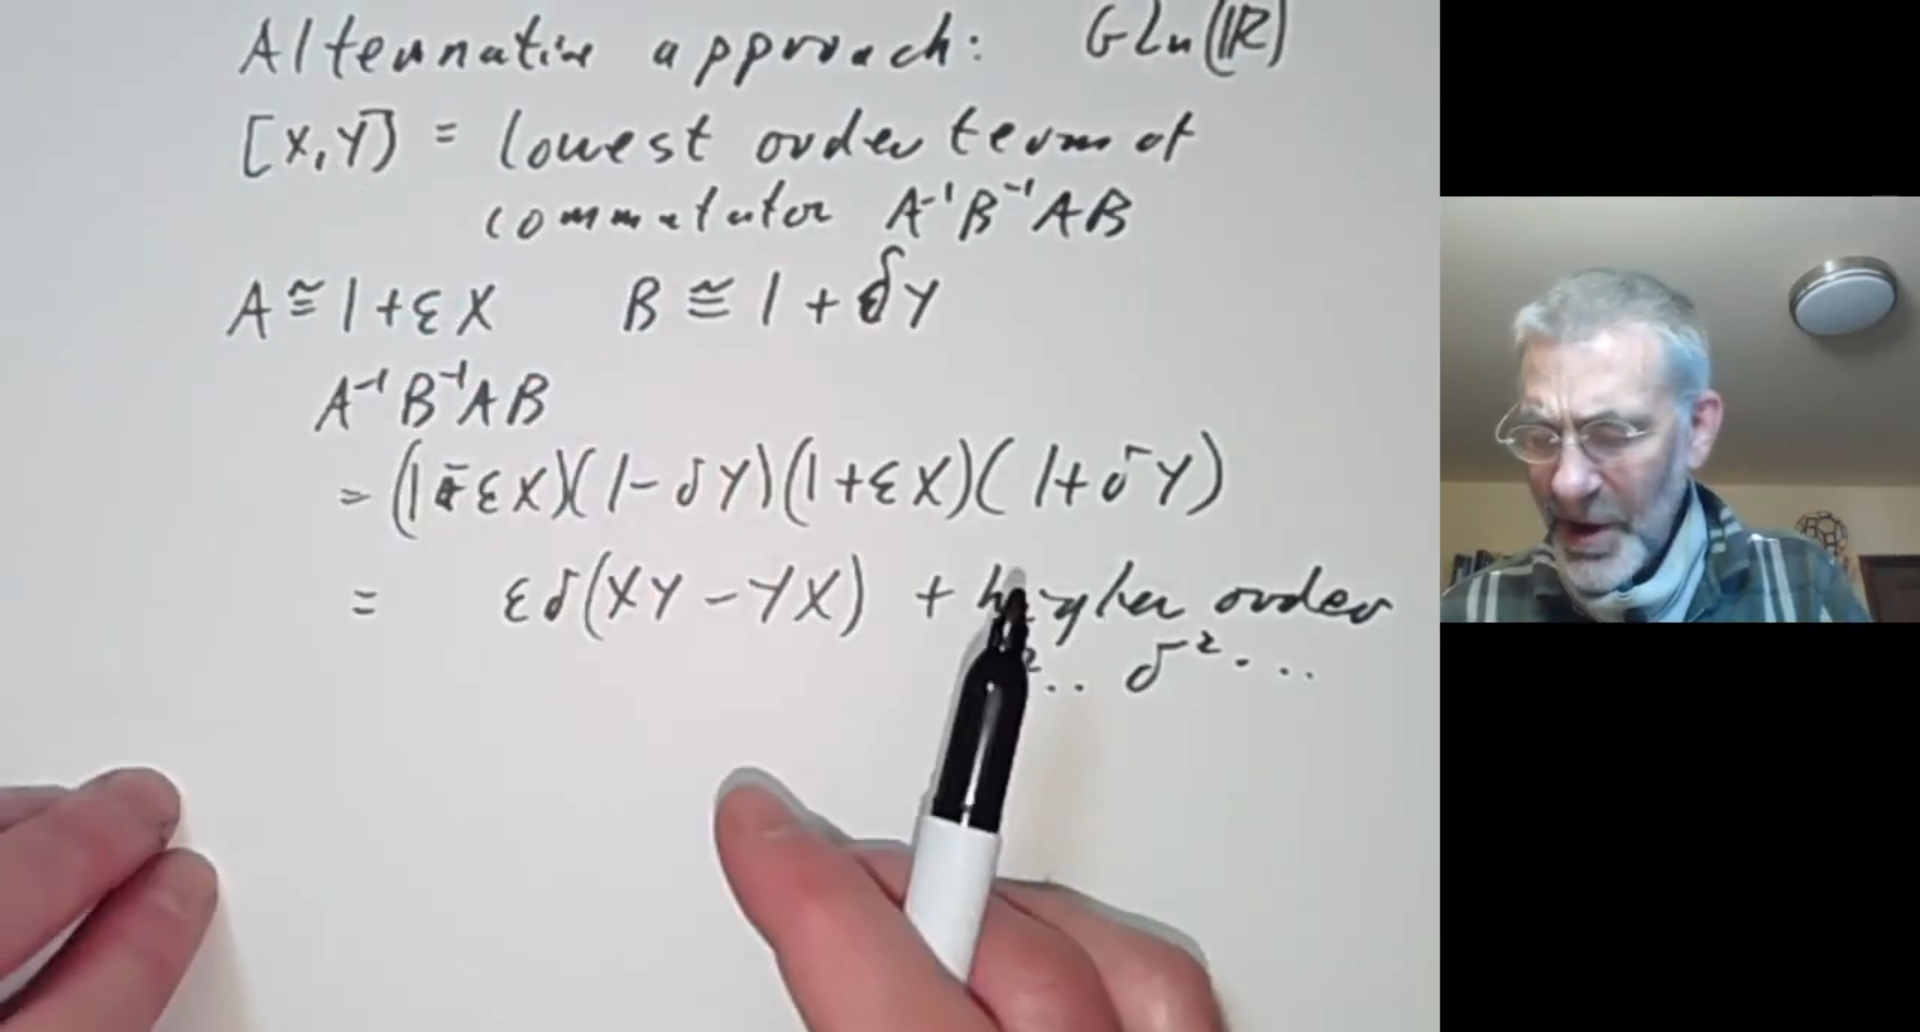 Alternative approach: GLn(ℝ)
[X,Y] = lowest order term of
commutator A⁻¹B⁻¹AB
A ≅ 1+εX B ≅ 1+δY
A⁻¹B⁻¹AB
= (1-εX)(1-δY)(1+εX)(1+δY)
= εδ(XY-YX) + higher order
².. δ²...